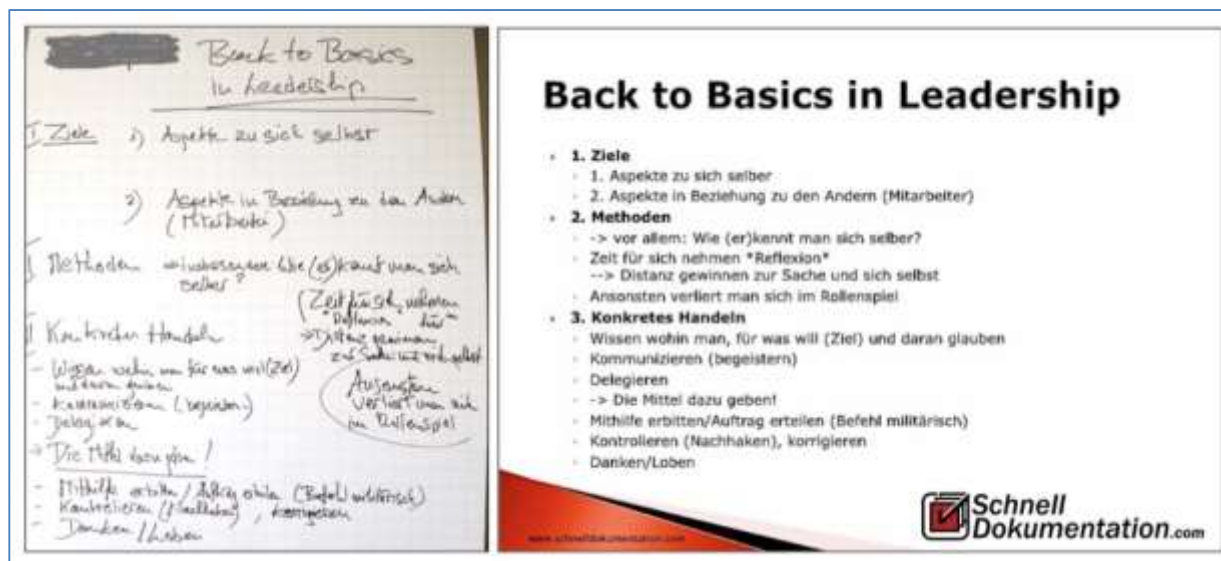 Back to Basics
in Leadership
I Ziele 1) Aspekte zu sich selbst
2) Aspekte in Beziehung zu den Andern
(Mitarbeiter)
Methoden → insbesondere Wie (er)kennt man sich
selber?
(Zeit für sich nehmen
"Reflexion"
→ Distanz gewinnen
zur Sache und sich selbst
Ansonsten
verliert man sich
im Rollenspiel
Konkretes Handeln
- Wissen wohin man für was will (Ziel)
und daran glauben
- Kommunizieren (begeistern)
- Delegieren
→ Die Mittel dazu geben!
- Mithilfe erbitten / Auftrag erteilen (Befehl militärisch)
- Kontrollieren (Nachhaken), korrigieren
- Danken / Loben
Back to Basics in Leadership
1. Ziele
1. Aspekte zu sich selber
2. Aspekte in Beziehung zu den Andern (Mitarbeiter)
2. Methoden
-> vor allem: Wie (er)kennt man sich selber?
Zeit für sich nehmen *Reflexion*
--> Distanz gewinnen zur Sache und sich selbst
Ansonsten verliert man sich im Rollenspiel
3. Konkretes Handeln
Wissen wohin man, für was will (Ziel) und daran glauben
Kommunizieren (begeistern)
Delegieren
-> Die Mittel dazu geben!
Mithilfe erbitten/Auftrag erteilen (Befehl militärisch)
Kontrollieren (Nachhaken), korrigieren
Danken/Loben
www.schnelldokumentation.com
Schnell
Dokumentation.com